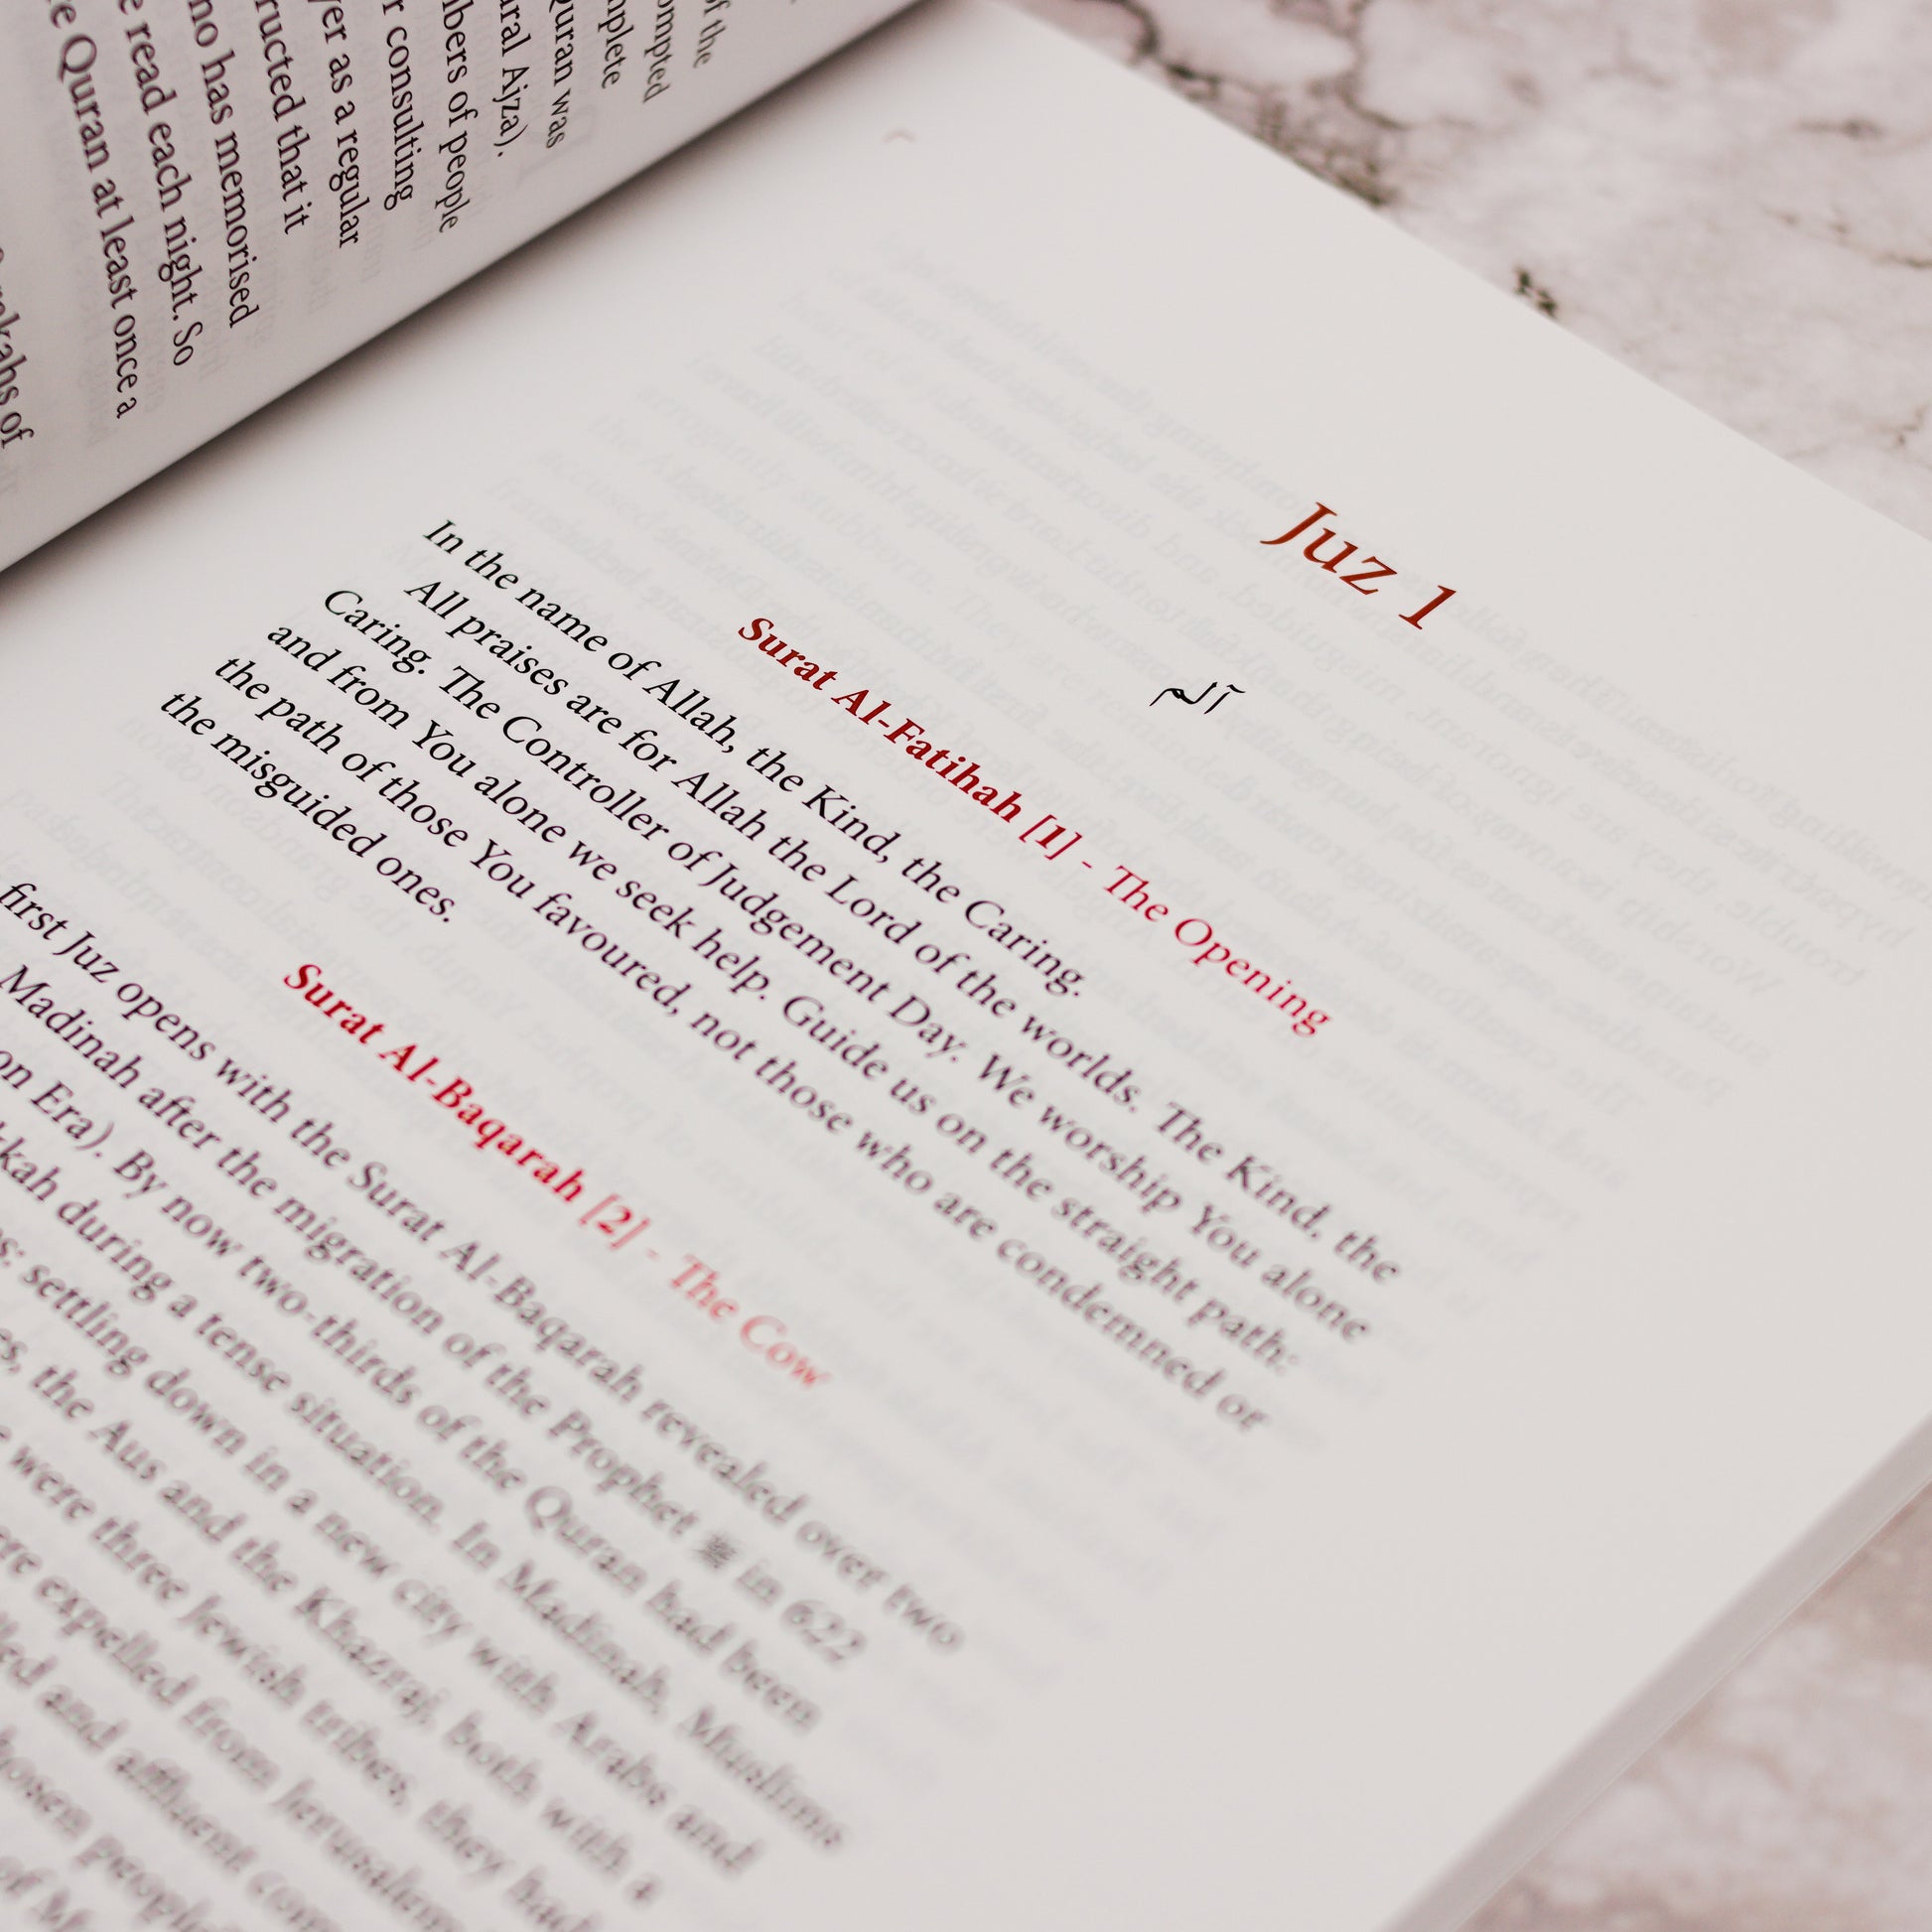 of the
ompted
mplete
Quran was
ral Ajza).
bers of people
r consulting
yer as a regular
ructed that it
no has memorised
e read each night. So
e Quran at least once a
akahs of
Juz 1
آلم
Surat Al-Fatihah [1] - The Opening
In the name of Allah, the Kind, the Caring.
All praises are for Allah the Lord of the worlds. The Kind, the
Caring. The Controller of Judgement Day. We worship You alone
and from You alone we seek help. Guide us on the straight path:
the path of those You favoured, not those who are condemned or
the misguided ones.
Surat Al-Baqarah [2] - The Cow
first Juz opens with the Surat Al-Baqarah revealed over two
Madinah after the migration of the Prophet ﷺ in 622
on Era). By now two-thirds of the Quran had been
kkah during a tense situation. In Madinah, Muslims
s: settling down in a new city with Arabs and
es, the Aus and the Khazraj, both with a
were three Jewish tribes, they had
re expelled from Jerusalem
led and affluent com
hosen people
of M